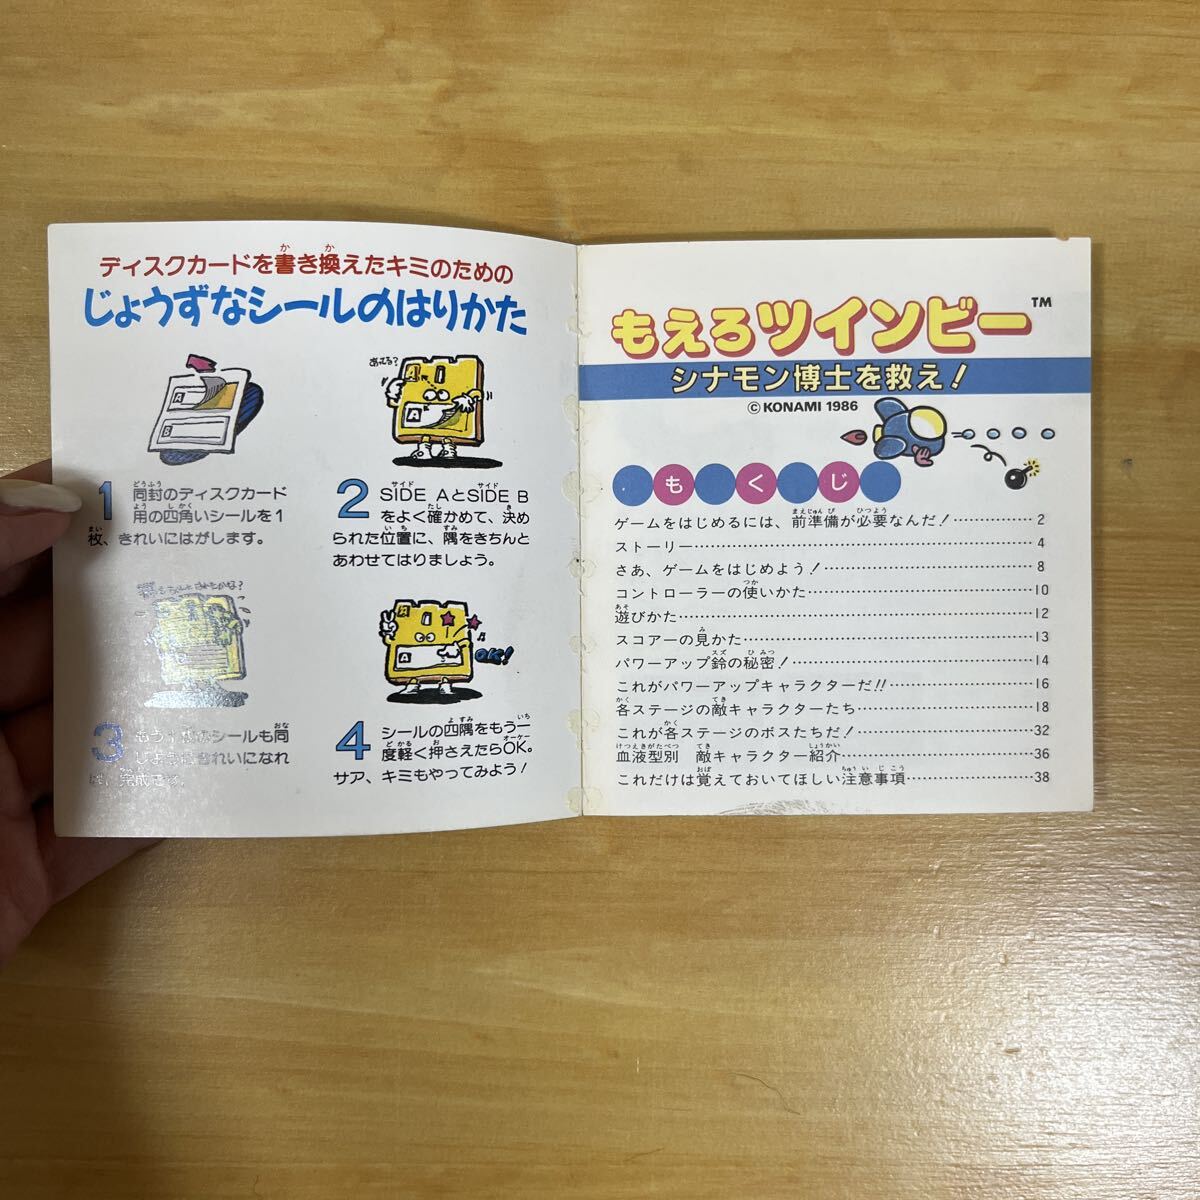 ディスクカードを書き換えたキミのための
じょうずなシールのはりかた
あってる?
1 同封のディスクカード
用の四角いシールを1
枚、きれいにはがします。
2 SIDE AとSIDE B
をよく確かめて、決め
られた位置に、隅をきちんと
あわせてはりましょう。
3 もう1枚のシールも同
じようにきれいになれ
ば、完成です。
OK!
4 シールの四隅をもう一
度軽く押さえたらOK。
サア、キミもやってみよう!
もえろツインビー™
シナモン博士を救え!
©KONAMI 1986
もくじ
ゲームをはじめるには、前準備が必要なんだ!……………2
ストーリー……………4
さあ、ゲームをはじめよう!……………8
コントローラーの使いかた……………10
遊びかた……………12
スコアーの見かた……………13
パワーアップ鈴の秘密!……………14
これがパワーアップキャラクターだ!!……………16
各ステージの敵キャラクターたち……………18
これが各ステージのボスたちだ!……………32
血液型別 敵キャラクター紹介……………36
これだけは覚えておいてほしい注意事項……………38